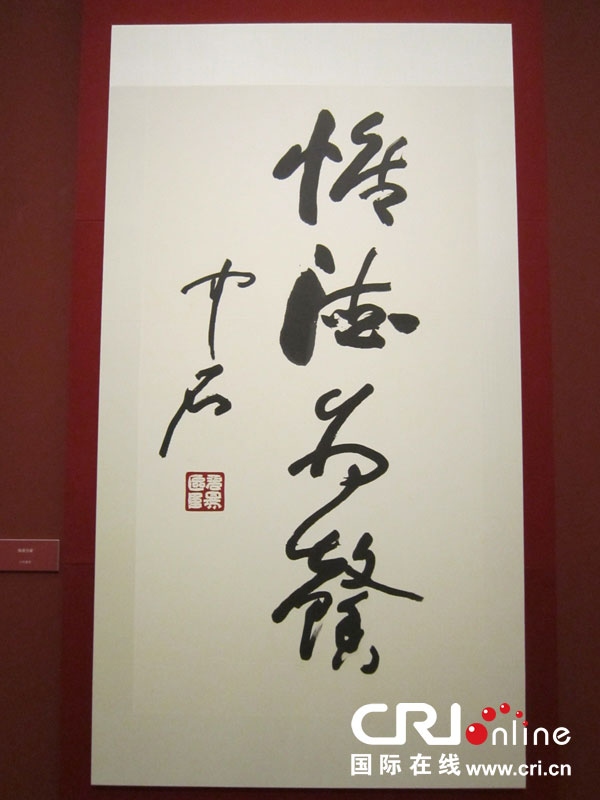 惟德为馨
中石
CRI online
国际在线 www.cri.cn